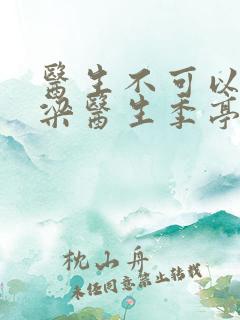 醫生不可以
梁醫生季亭
枕山舟
未经同意禁止转载